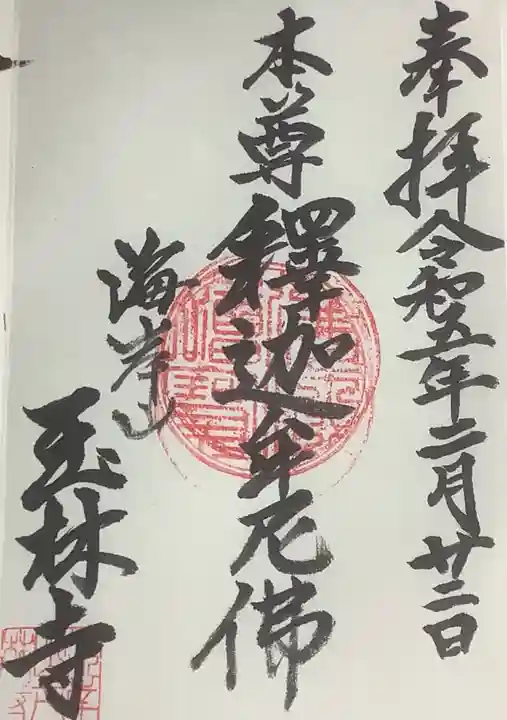 奉拝令和五年二月廿二日
本尊釋迦牟尼佛
海岸山
玉林寺